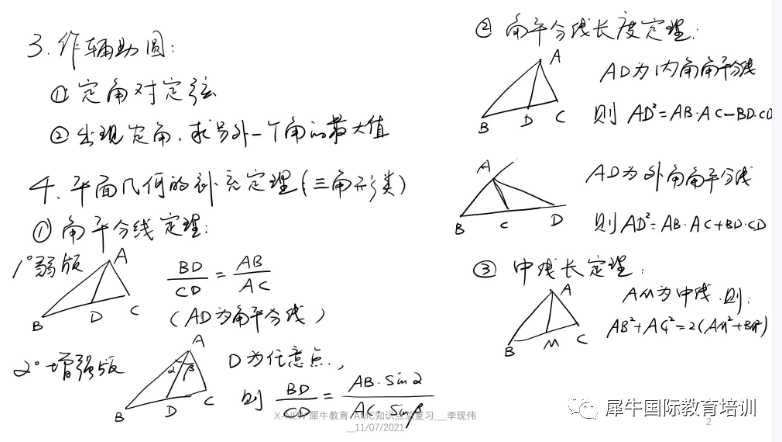 3. 作辅助圆:
① 定角对定弦
② 出现定角,求另外一个角的最大值
4. 平面几何的补充定理(三角形类)
① 角平分线定理:
1° 弱版
A
B D C
BD/CD = AB/AC
(AD为角平分线)
2° 增强版
A
α β
B D C
D为任意点,
则 BD/CD = AB·sinα/AC·sinβ
② 角平分线长度定理:
A
B D C
AD为内角角平分线
则 AD²=AB·AC-BD·CD
A
B C D
AD为外角角平分线
则AD²=AB·AC+BD·CD
③ 中线长定理:
A
B M C
AM为中线.则:
AB²+AC²=2(AM²+BM²)
犀牛教育 知识点 复习__李现伟
_11/07/2021
2
犀牛国际教育培训